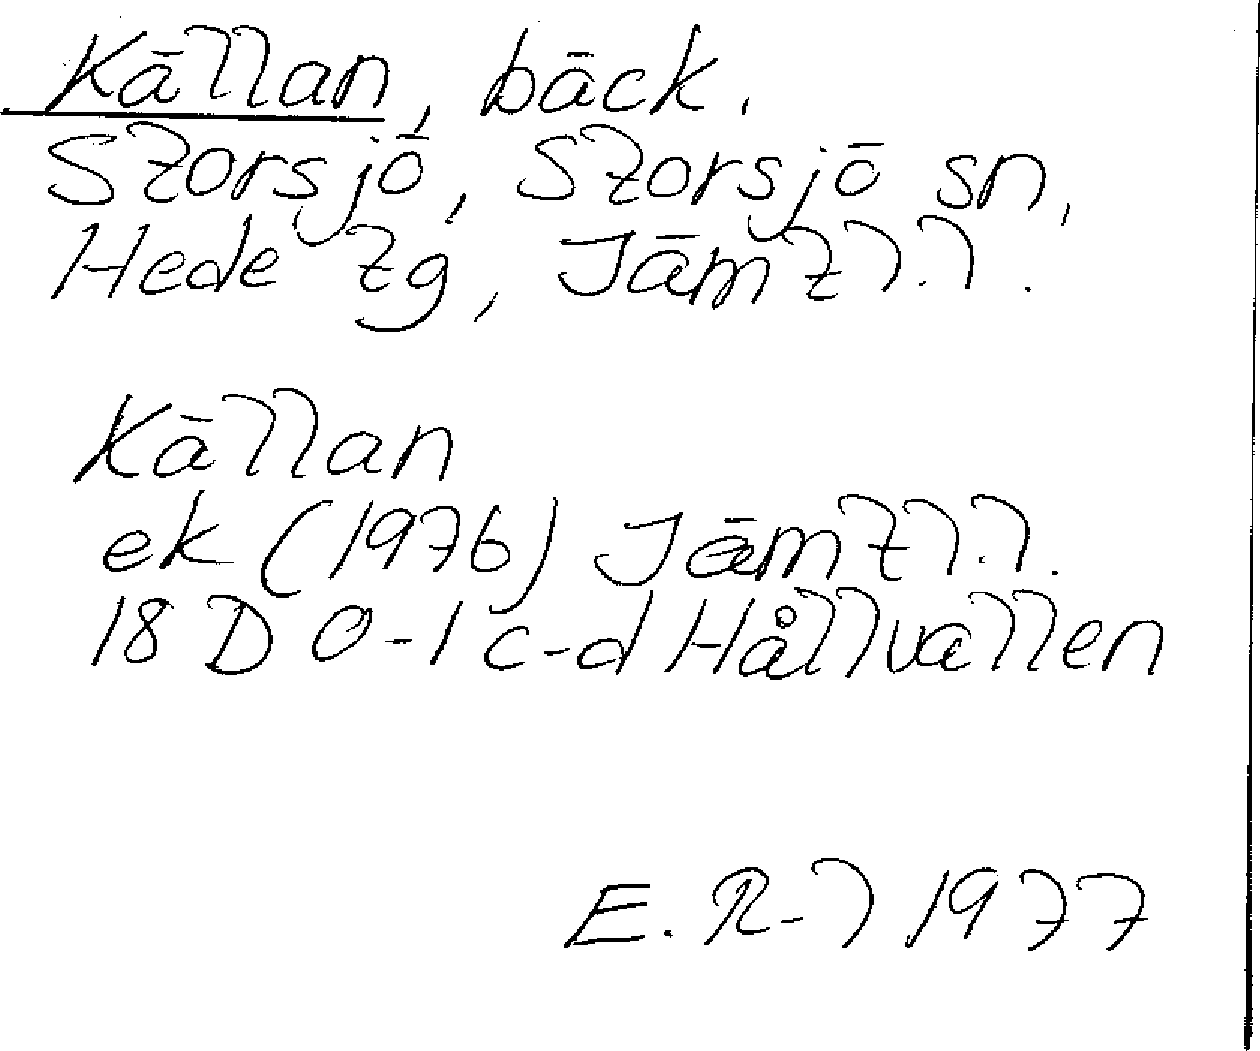 Källan, bäck.
Storsjö, Storsjö sn,
Hede tg, Jämtl.l.
Källan
ek (1976) Jämtl.l.
18 D 0-1 c-d Hållvallen
E. R-l 1977